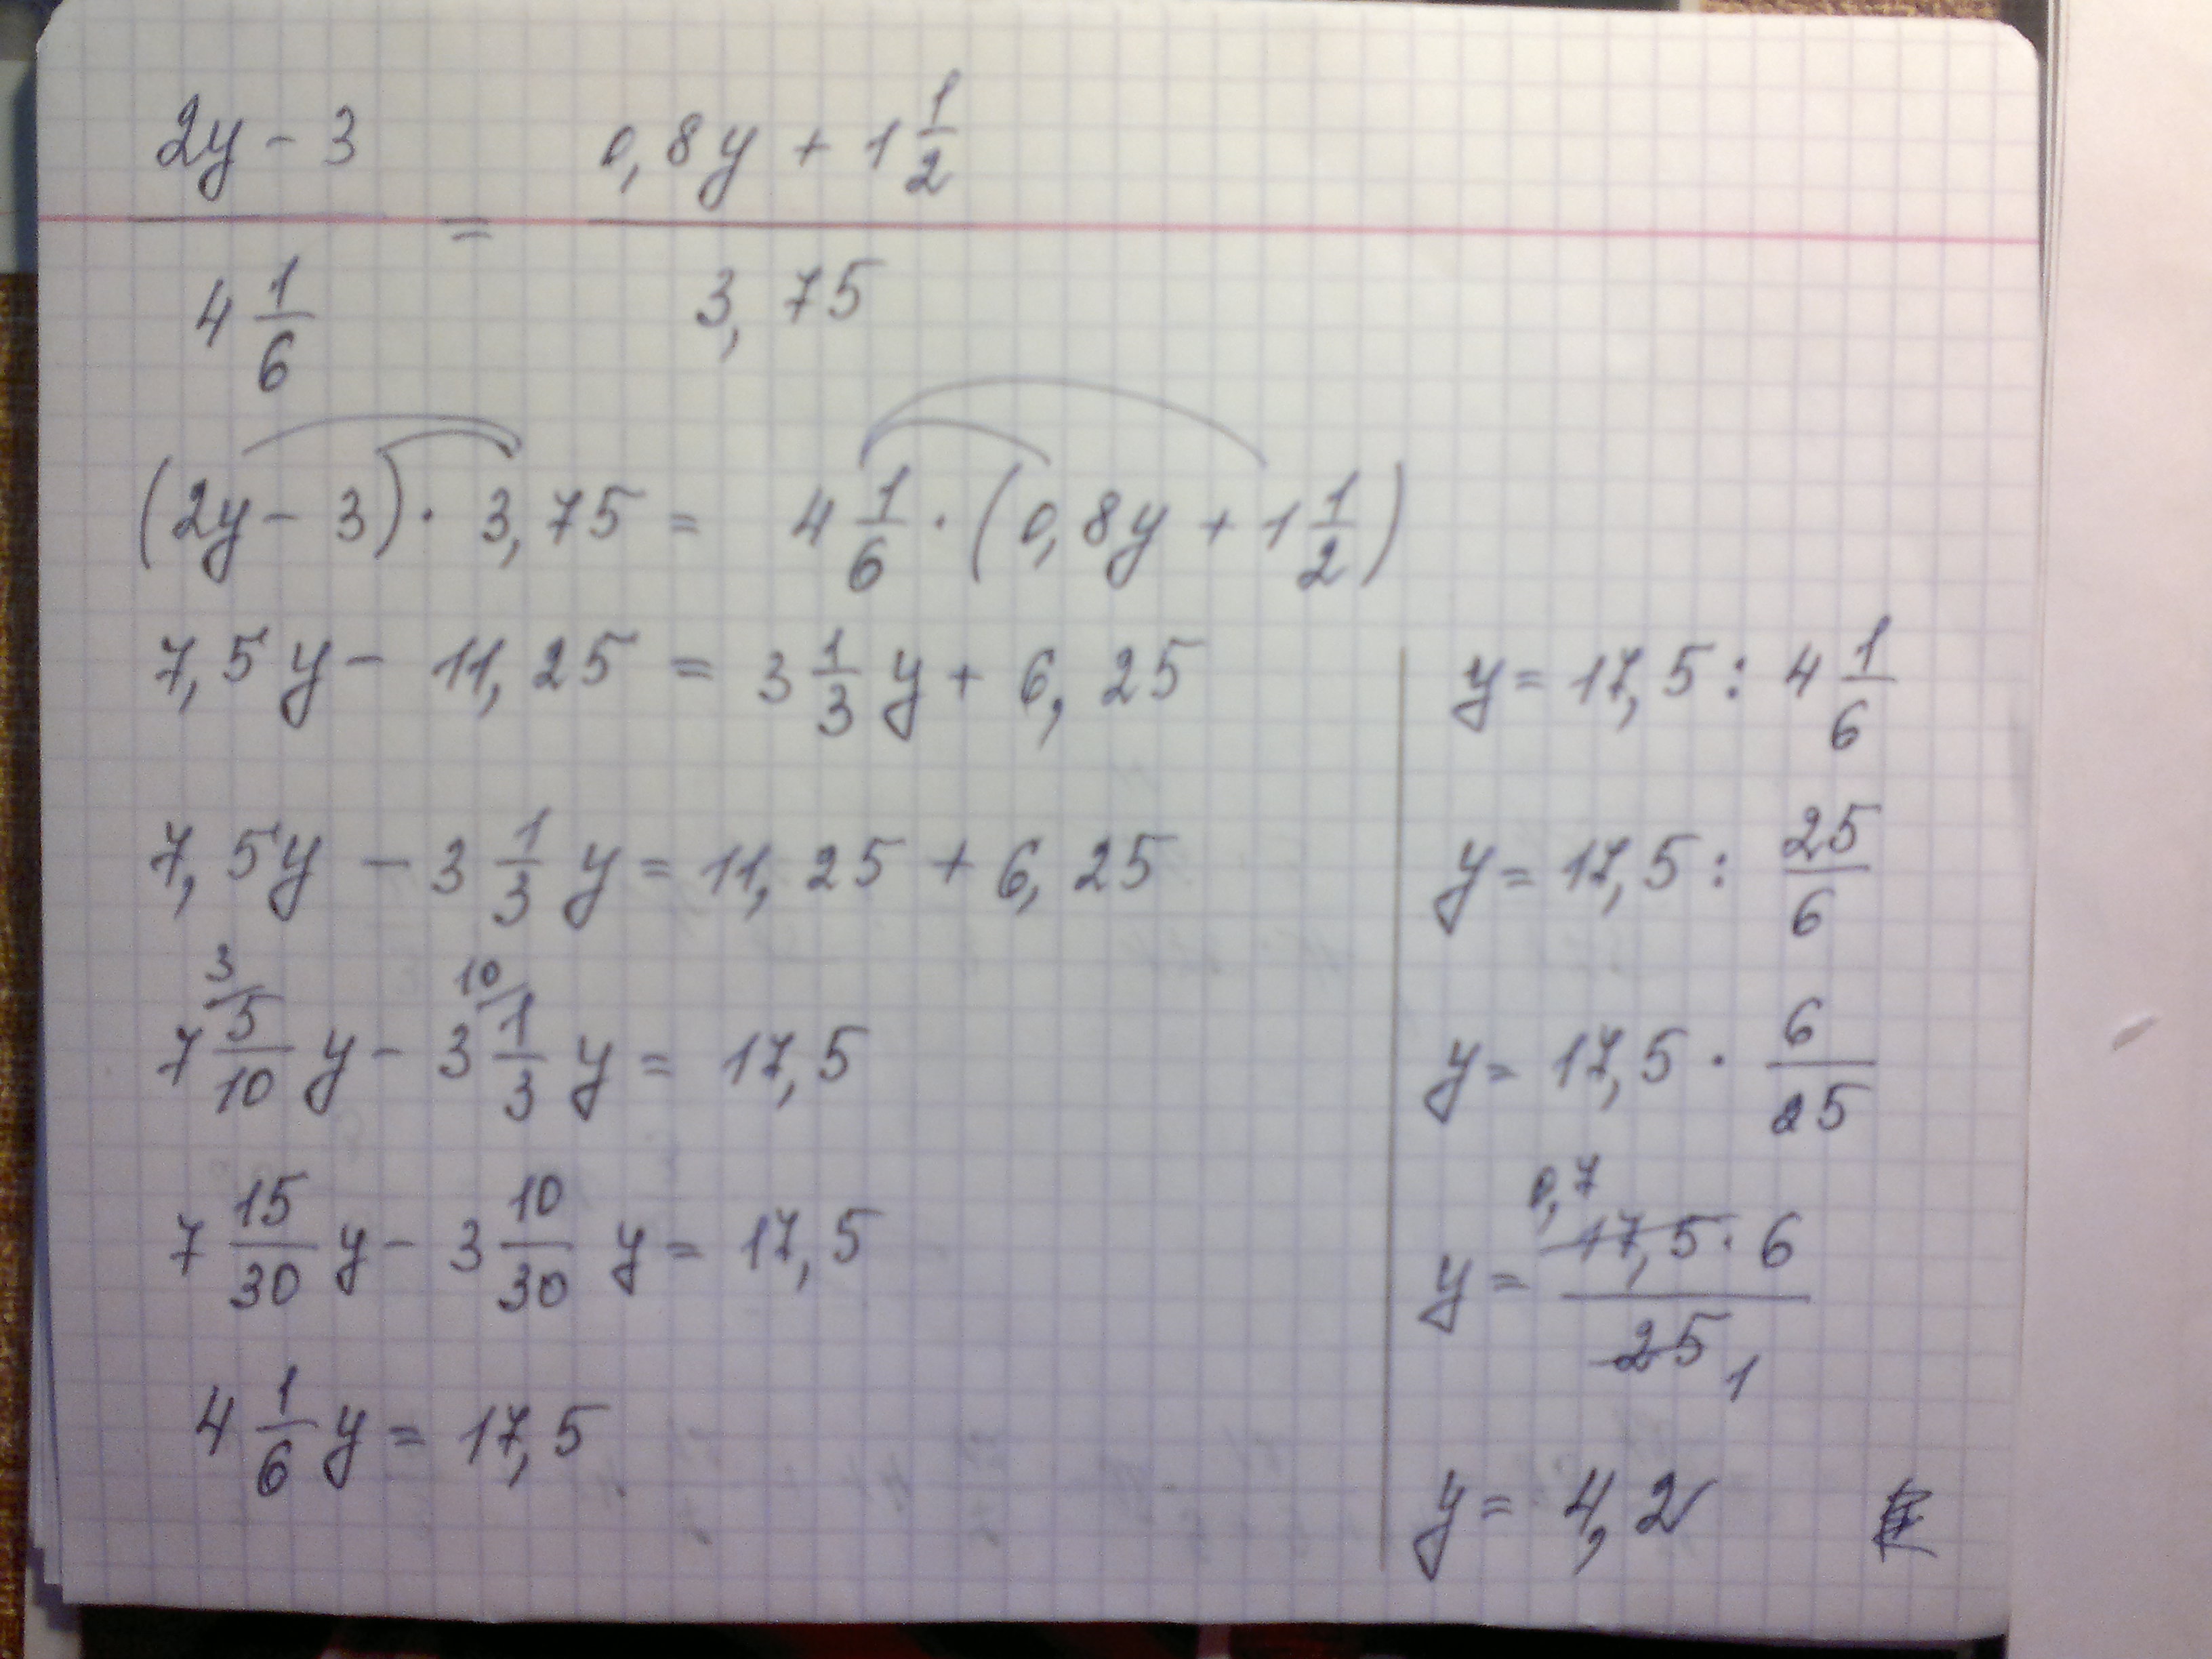 2y - 3 / 4 1/6 = 0,8y + 1 1/2 / 3,75
(2y - 3) · 3,75 = 4 1/6 · (0,8y + 1 1/2)
7,5y - 11,25 = 3 1/3 y + 6,25
7,5y - 3 1/3 y = 11,25 + 6,25
3/ 10/
7 5/10 y - 3 1/3 y = 17,5
7 15/30 y - 3 10/30 y = 17,5
4 1/6 y = 17,5
y = 17,5 : 4 1/6
y = 17,5 : 25/6
y = 17,5 · 6/25
0,7
y = 17,5 · 6 / 25 1
y = 4,2